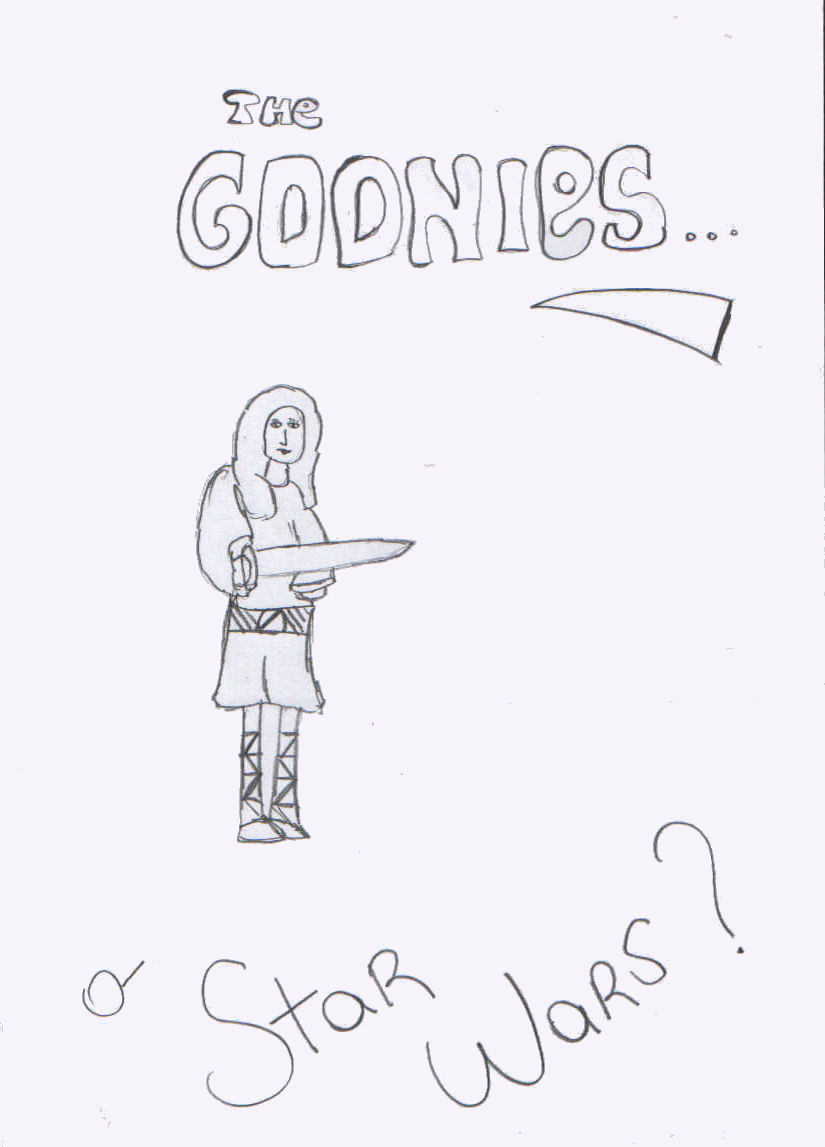 THE
GOONIES...
O STAR
WARS?